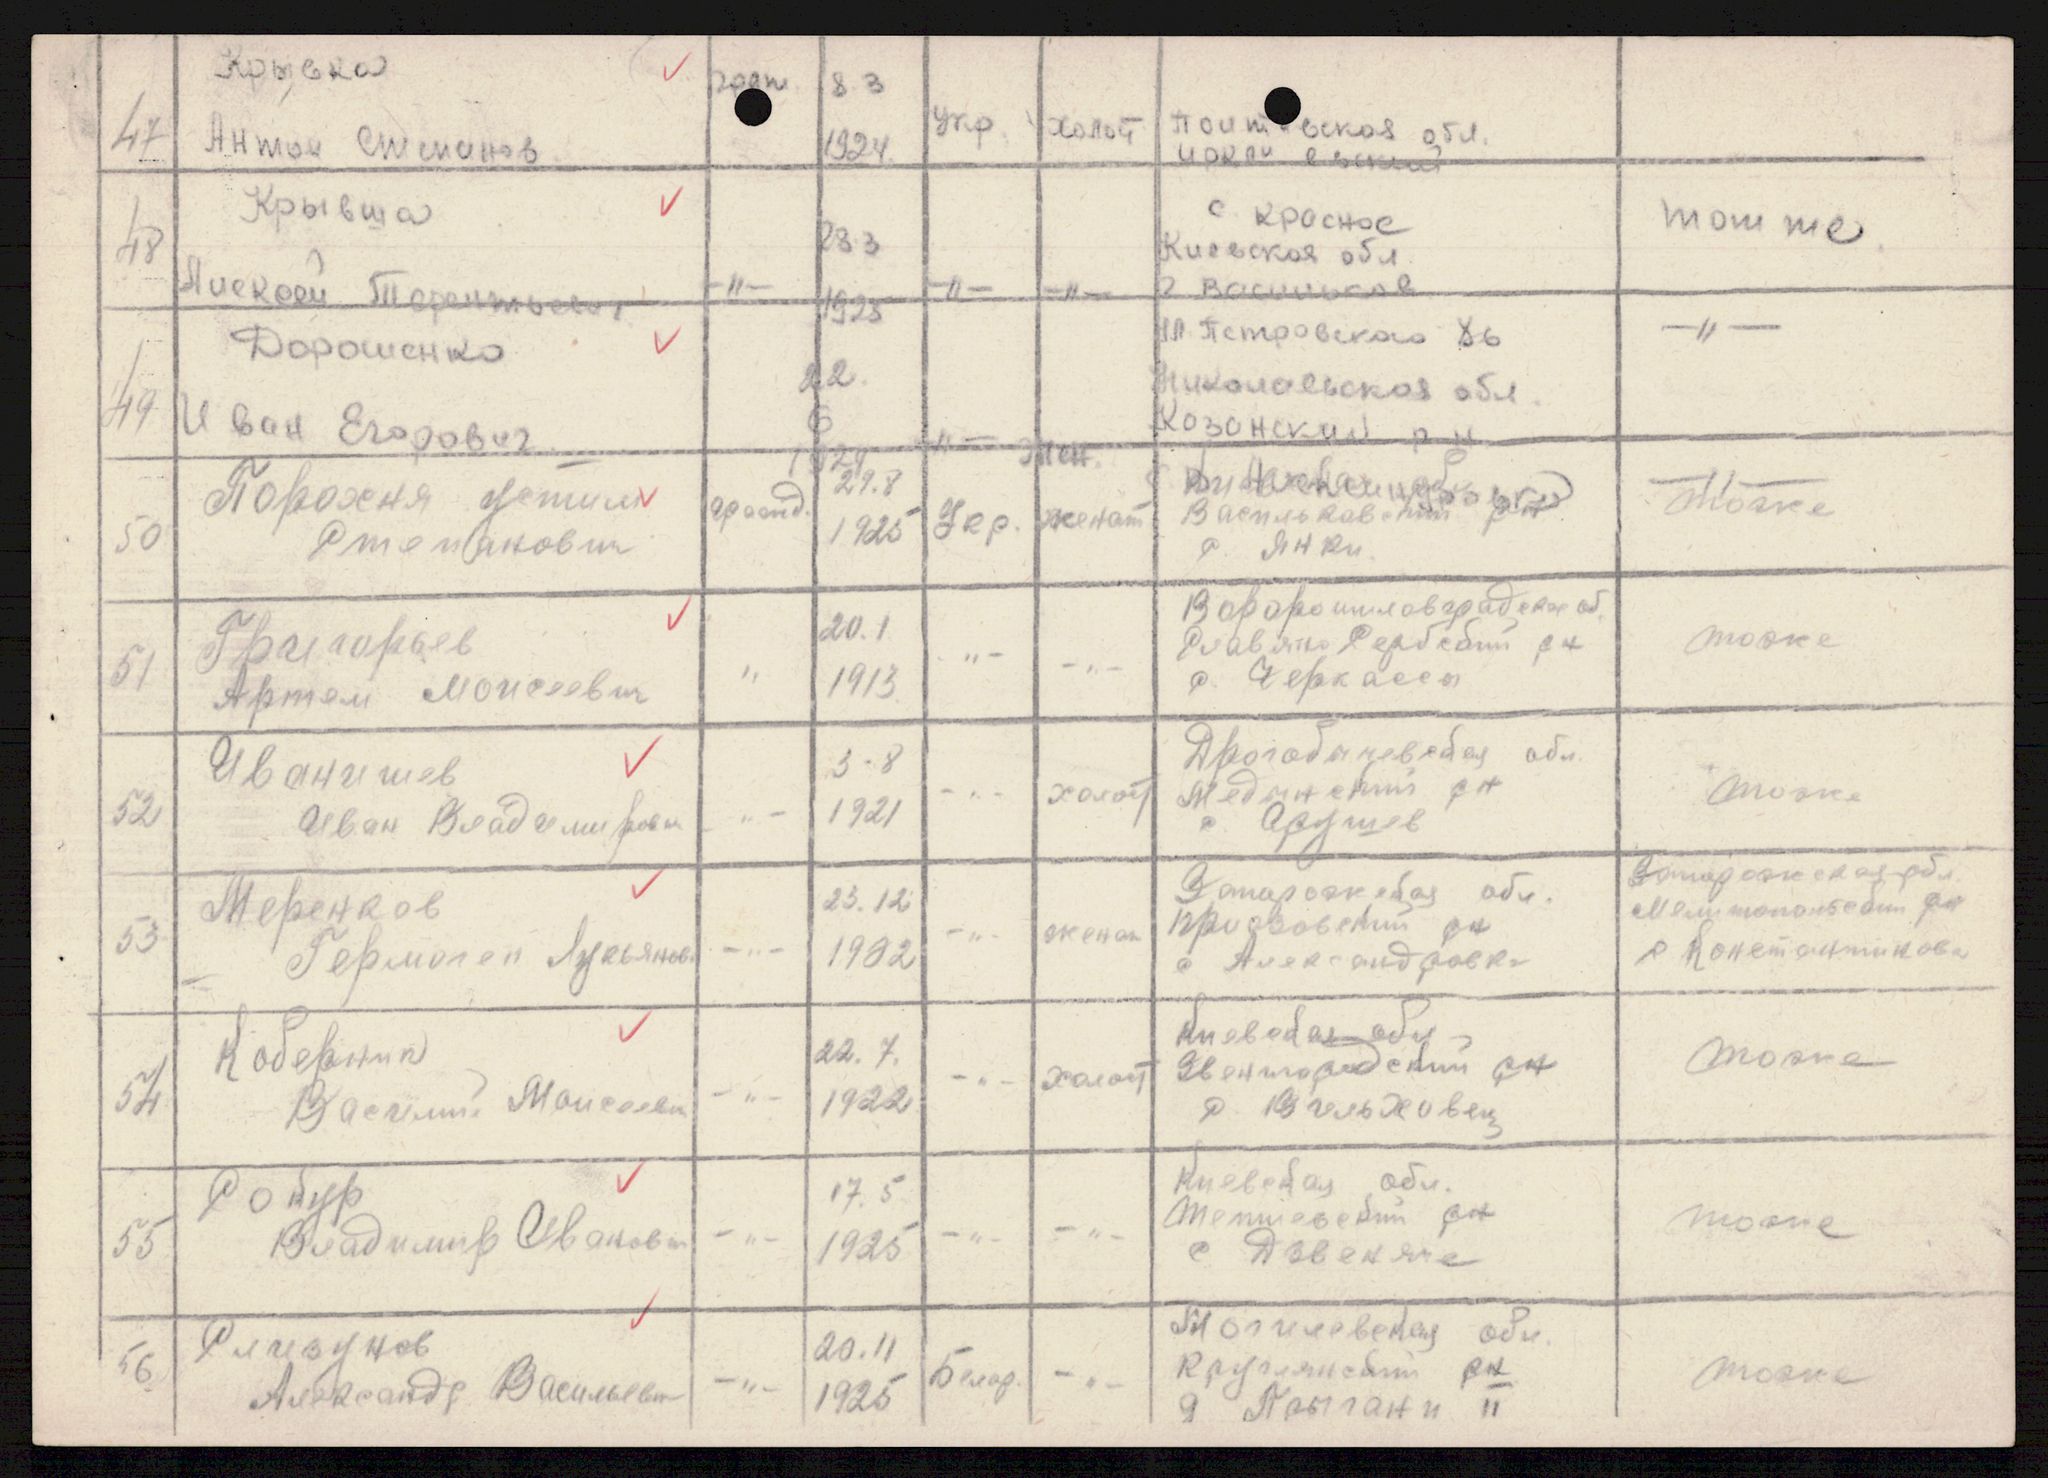 47 Крывка гран. 8 3
Антон Степанов 1924 Укр. холост Полтавская обл.
с Красное
48 Крывша 28 3 Киевская обл. тот же
Алексей Терентьевич -"- 1925 -"- -"- г Васильков
ул. Петровского -"-
49 Дорошенко 22. Николаевская обл.
Иван Егорович 6 Козанский р н
1924 -"- жен.
50 Порохня Устим гражд. 29.8 Укр. женат Васильковский рн тоже
Степанович 1925 с. Янки
51 Григорьев " 20.1 -"- -"- Воророшиловградская об. тоже
Артем Моисеевич 1913 Славяно Сербский рн
с. Черкассы
52 Иванишев 3-8 Дрогобычевская обл. тоже
Иван Владимирович -"- 1921 -"- холост Медынский рн
с. Грушев
53 Меренков 23.12 Запарожская обл. Запарожская обл.
Гермоген Лукьянов. -"- 1902 -"- женат Приазовский рн Мелитопольский рн
с Александровка с Константиновка
54 Коберник 22.7. Киевская обл. тоже
Василий Моисеевич -"- 1922 -"- холост Звенигородский рн
с. Вильховец
55 Робур 17.5 Киевская обл.
Владимир Иванович -"- 1925 -"- -"- Тетиевский рн тоже
с Дзвеняче
56 Слизунов 20.11 Могилевская обл.
Александр Васильевич -"- 1925 Белор. -"- Круглянский рн тоже
д Прыгани II